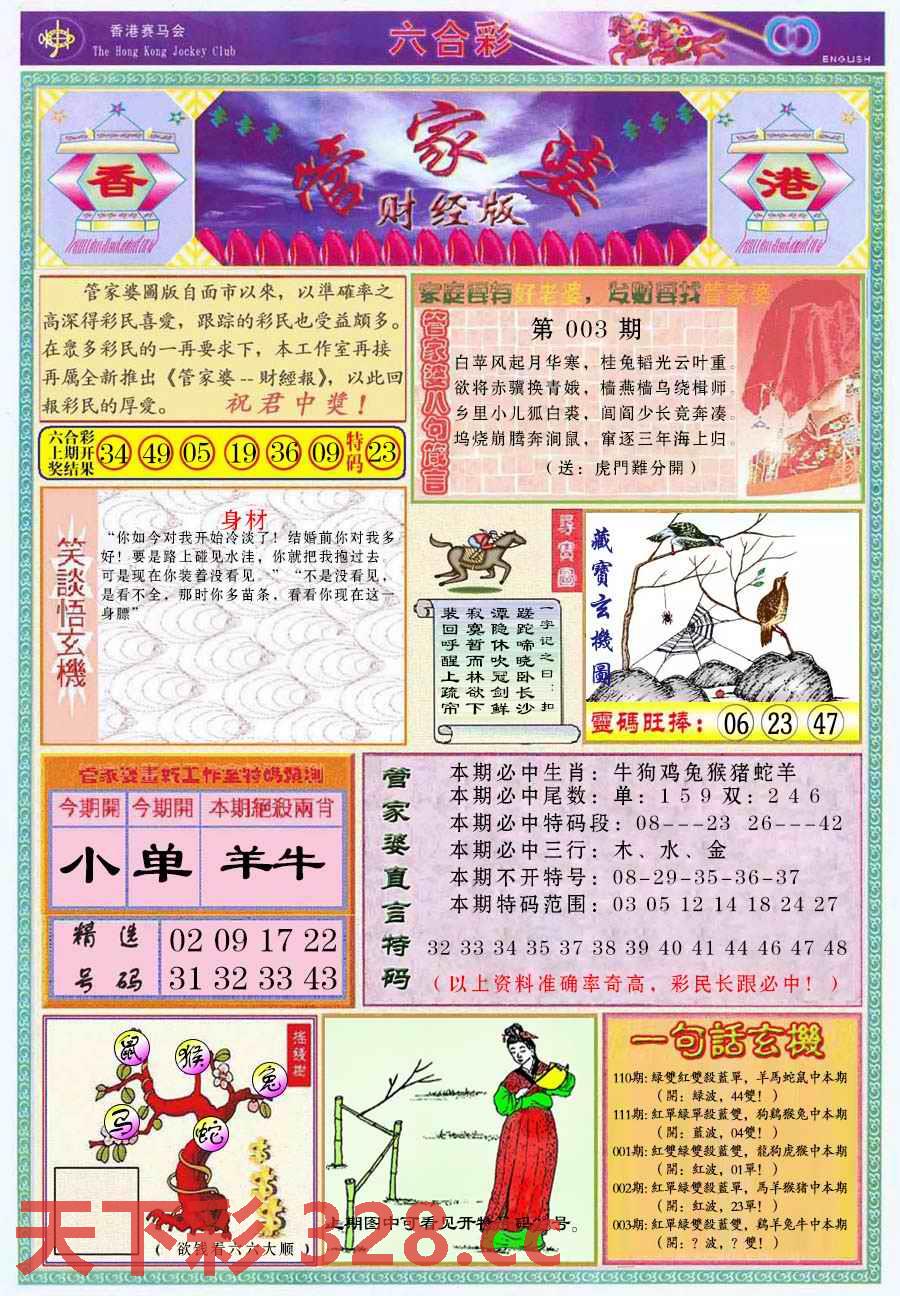 香港赛马会
The Hong Kong Jockey Club
六合彩
ENGLISH
香
管家婆
财经版
港
管家婆圖版自面市以來，以準確率之
高深得彩民喜愛，跟踪的彩民也受益頗多。
在眾多彩民的一再要求下，本工作室再接
再厲全新推出《管家婆--財經報》，以此回
報彩民的厚愛。 祝君中獎！
六合彩
上期开
奖结果
34 49 05 19 36 09 特码 23
家庭要有好老婆，发财要找管家婆
管家婆八句箴言
第 003 期
白苹风起月华寒，桂兔韬光云叶重。
欲将赤骥换青娥，樯燕樯乌绕楫师。
乡里小儿狐白裘，闾阎少长竞奔凑。
坞烧崩腾奔涧鼠，窜逐三年海上归。
（送：虎門難分開）
笑談悟玄機
身材
“你如今对我开始冷淡了！结婚前你对我多
好！要是路上碰见水洼，你就把我抱过去，
可是现在你装着没看见。”“不是没看见，
是看不全，那时你多苗条，看看你现在这一
身膘”
尋寶圖
一字记之曰：扣
蹉跎啼晓卧长沙
潭隐休吹冠剑鲜
寂寞暂而林欲下
装回呼醒上疏帘
藏寶玄機圖
靈碼旺捧：06 23 47
今期開 今期開 本期絕殺兩肖
小 单 羊牛
精选
号码
02 09 17 22
31 32 33 43
管家婆直言特码
本期必中生肖：牛狗鸡兔猴猪蛇羊
本期必中尾数：单：1 5 9 双：2 4 6
本期必中特码段：08---23 26---42
本期必中三行：木、水、金
本期不开特号：08-29-35-36-37
本期特码范围：03 05 12 14 18 24 27
32 33 34 35 37 38 39 40 41 44 46 47 48
（以上资料准确率奇高，彩民长跟必中！）
搖錢樹
鼠
猴
兔
马
蛇
（欲钱看六六大顺）
上期图中可看见开特 码 号。
一句話玄機
110期：綠雙紅雙殺藍單，羊馬蛇鼠中本期
（開：綠波，44雙！）
111期：紅單綠單殺藍雙，狗鷄猴兔中本期
（開：藍波，04雙！）
001期：紅雙綠雙殺藍雙，龍狗虎猴中本期
（開：紅波，01單！）
002期：紅單綠雙殺藍單，馬羊猴猪中本期
（開：紅波，23單！）
003期：紅單綠雙殺藍雙，鷄羊兔牛中本期
（開：？波，？雙！）
天下彩 328.cc